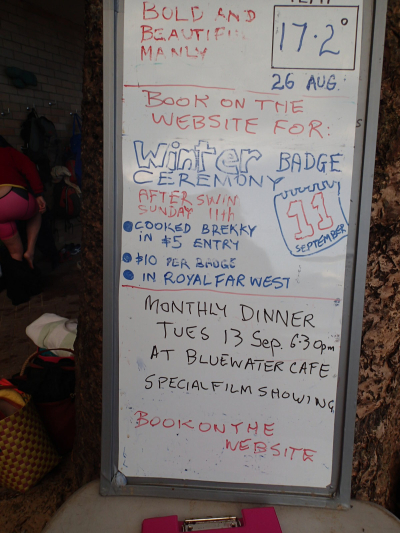 BOLD AND
BEAUTIFUL
MANLY
17.2°
26 AUG.
BOOK ON THE
WEBSITE FOR:
Winter BADGE
CEREMONY
AFTER SWIM
SUNDAY 11th
11
SEPTEMBER
COOKED BREKKY
IN $5 ENTRY
$10 PER BADGE
IN ROYAL FAR WEST
MONTHLY DINNER
TUES 13 Sep. 6:30pm
AT BLUEWATER CAFE
SPECIAL FILM SHOWING
BOOK ON THE
WEBSITE